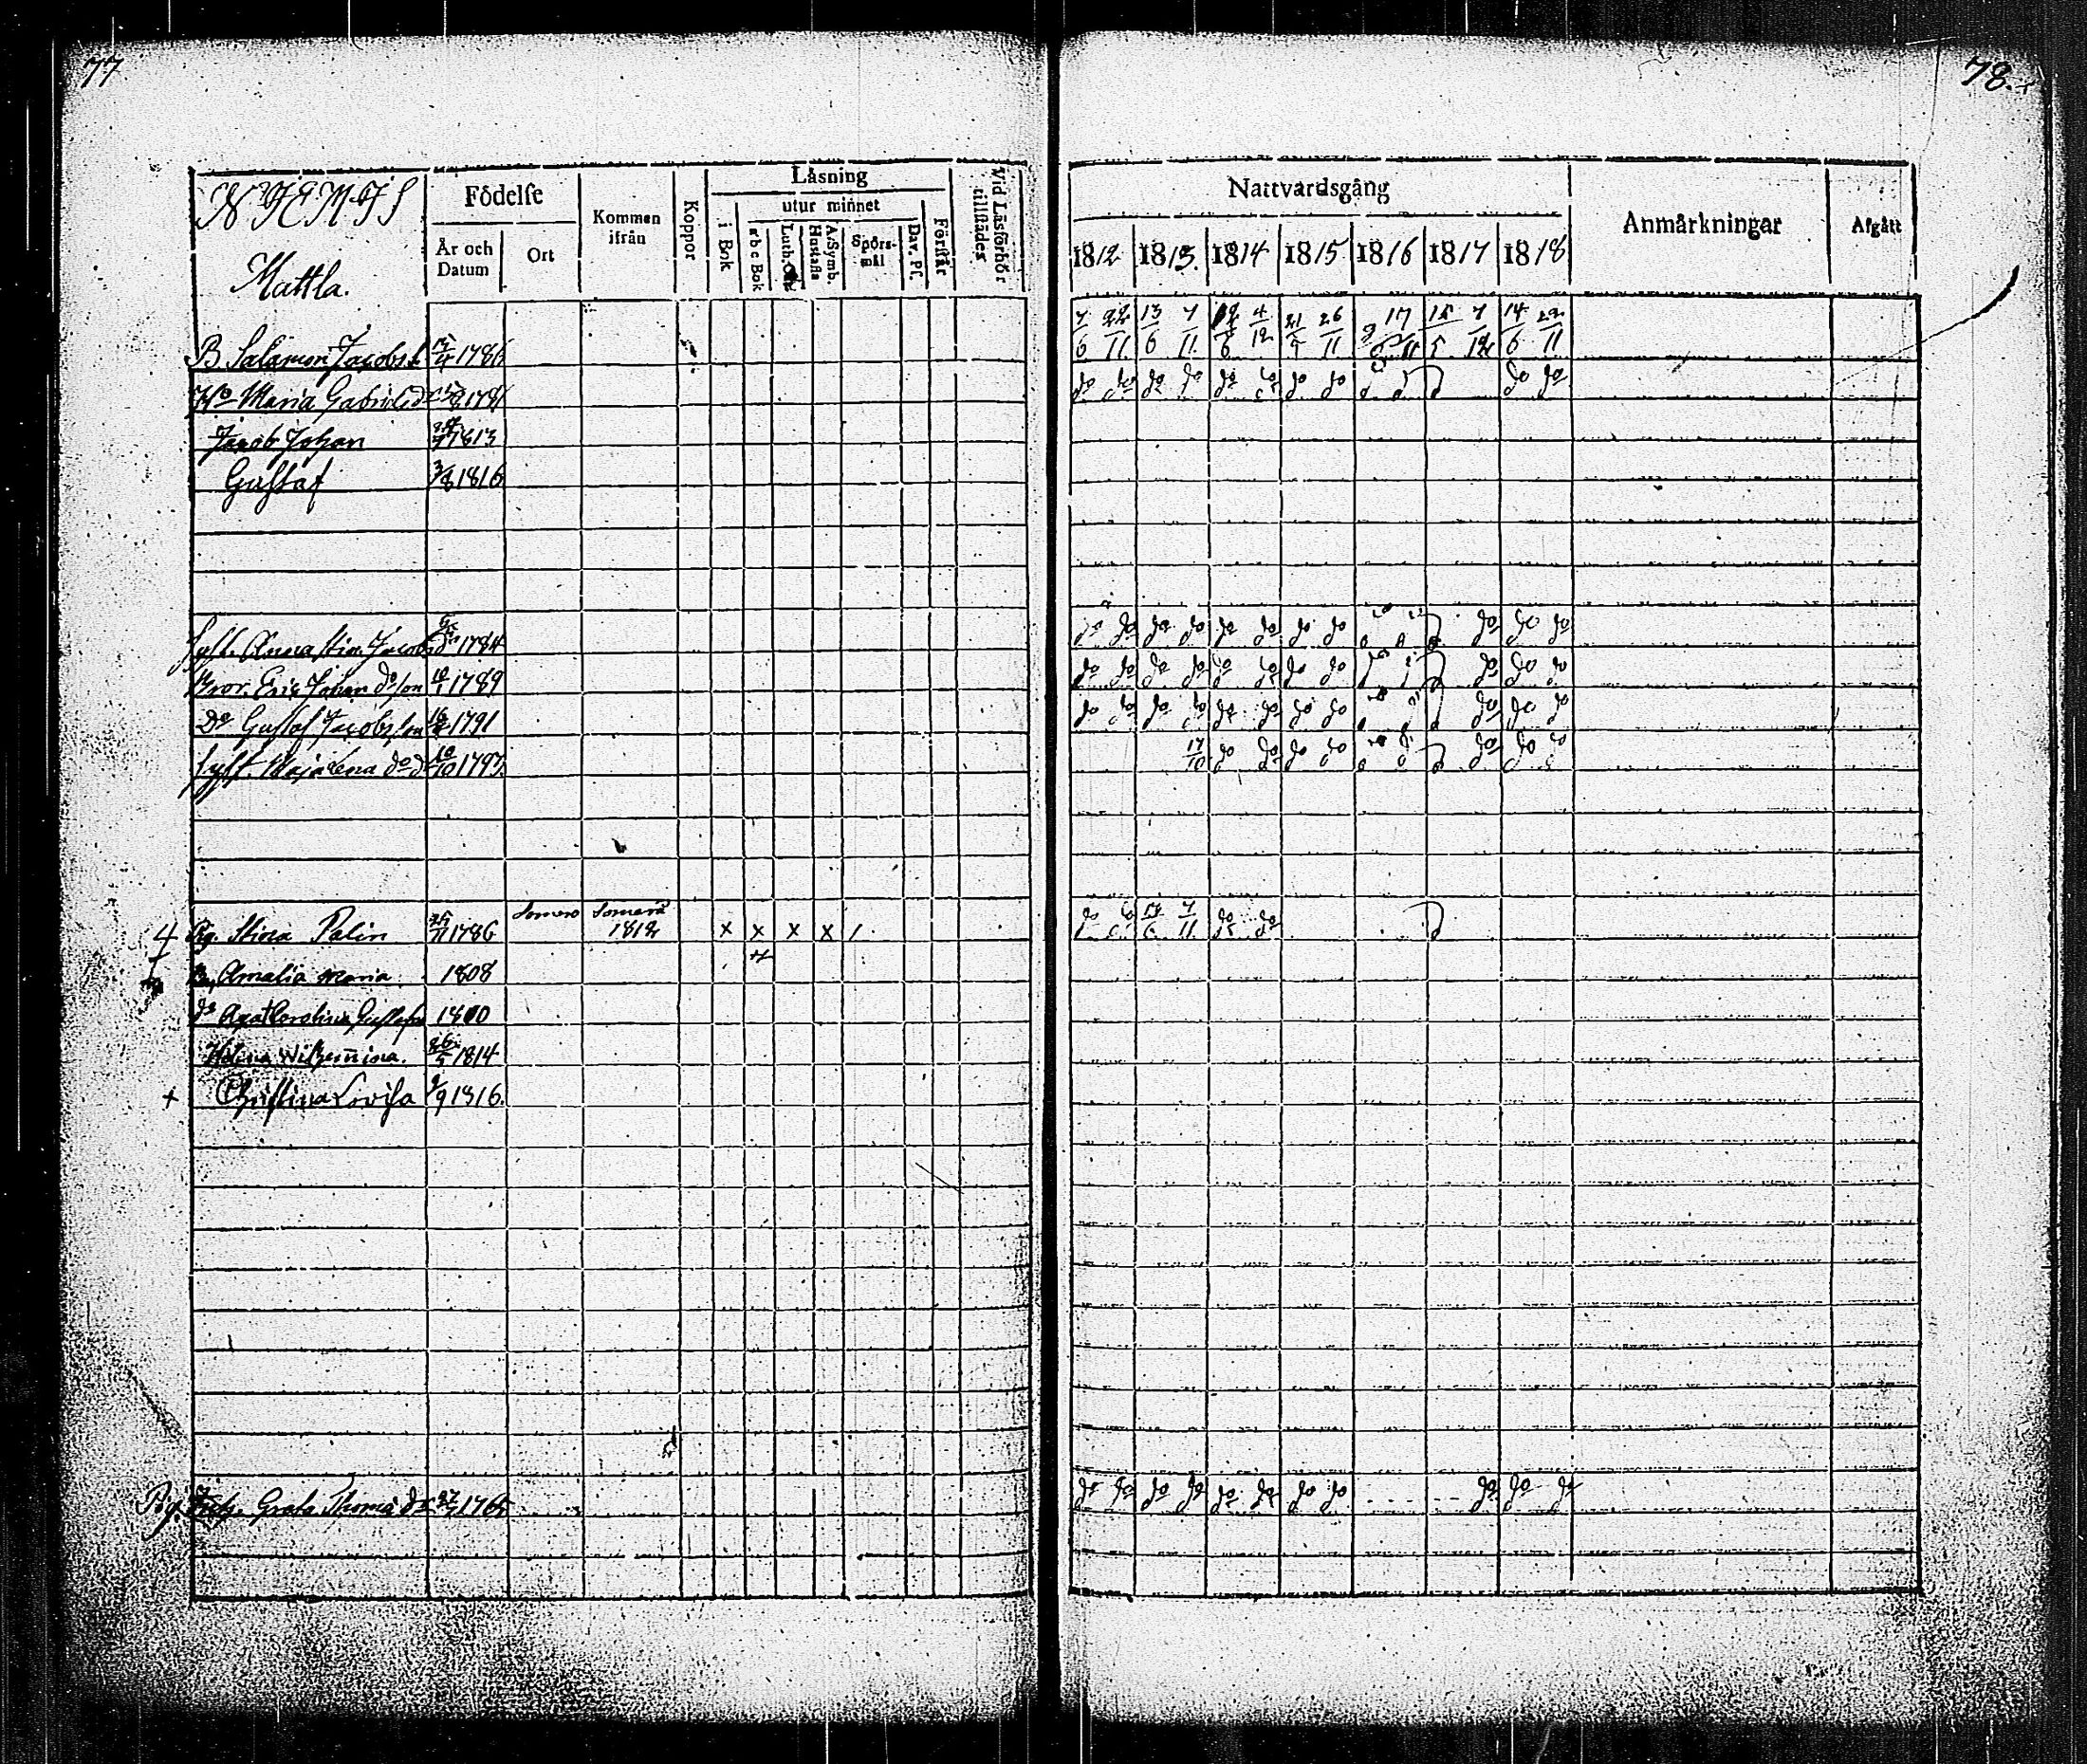 77
78.
NIEMIS
Mattla.
Födelse
År och Datum
Ort
Kommen ifrån
Koppor
Läsning
i Bok
utur minnet
abc Bok
Luth. Cat
A. Symb. Hustafla
Spörs-mål
Dav. Ps.
Förstår
Vid Läsförhör tillstädes
Nattvardsgång
1812 1813. 1814 1815 1816 1817 1818
Anmärkningar
Afgått
B Salamon Jacobs 1786 7/6 22/11 13/6 7/11 12/6 4/12 21/5 26/11 17/11 15/5 7/12 14/6 22/11
Ho Maria Gabrielsd 178 do do do do do do do do do do
Jacob Johan 24/7 1813
Gustaf 3/8 1816
Syst. Anna Stina Jacobsd 1784 do do do do do do do do do do do
Bror. Eric Johan do son 10/1 1789 do do do do do do do do do do do
Do Gustaf Jacobsson 1791 do do do do do do do do do do do
Syst. Maja Lena do d 10/10 1797 17/10 do do do do do do do
4 Rg. Stina Palin 25/11 1786 Somero Somero 1812 x x x x / do do 7/11 do do
Amalia Maria 1808
do Agat Carolina Gustafsd 1810
Helena Wilhemina. 26/5 1814
+ Christina Lovisa 2/9 1816.
Rg. Greta Thomæ dr 1765 do do do do do do do do do do do